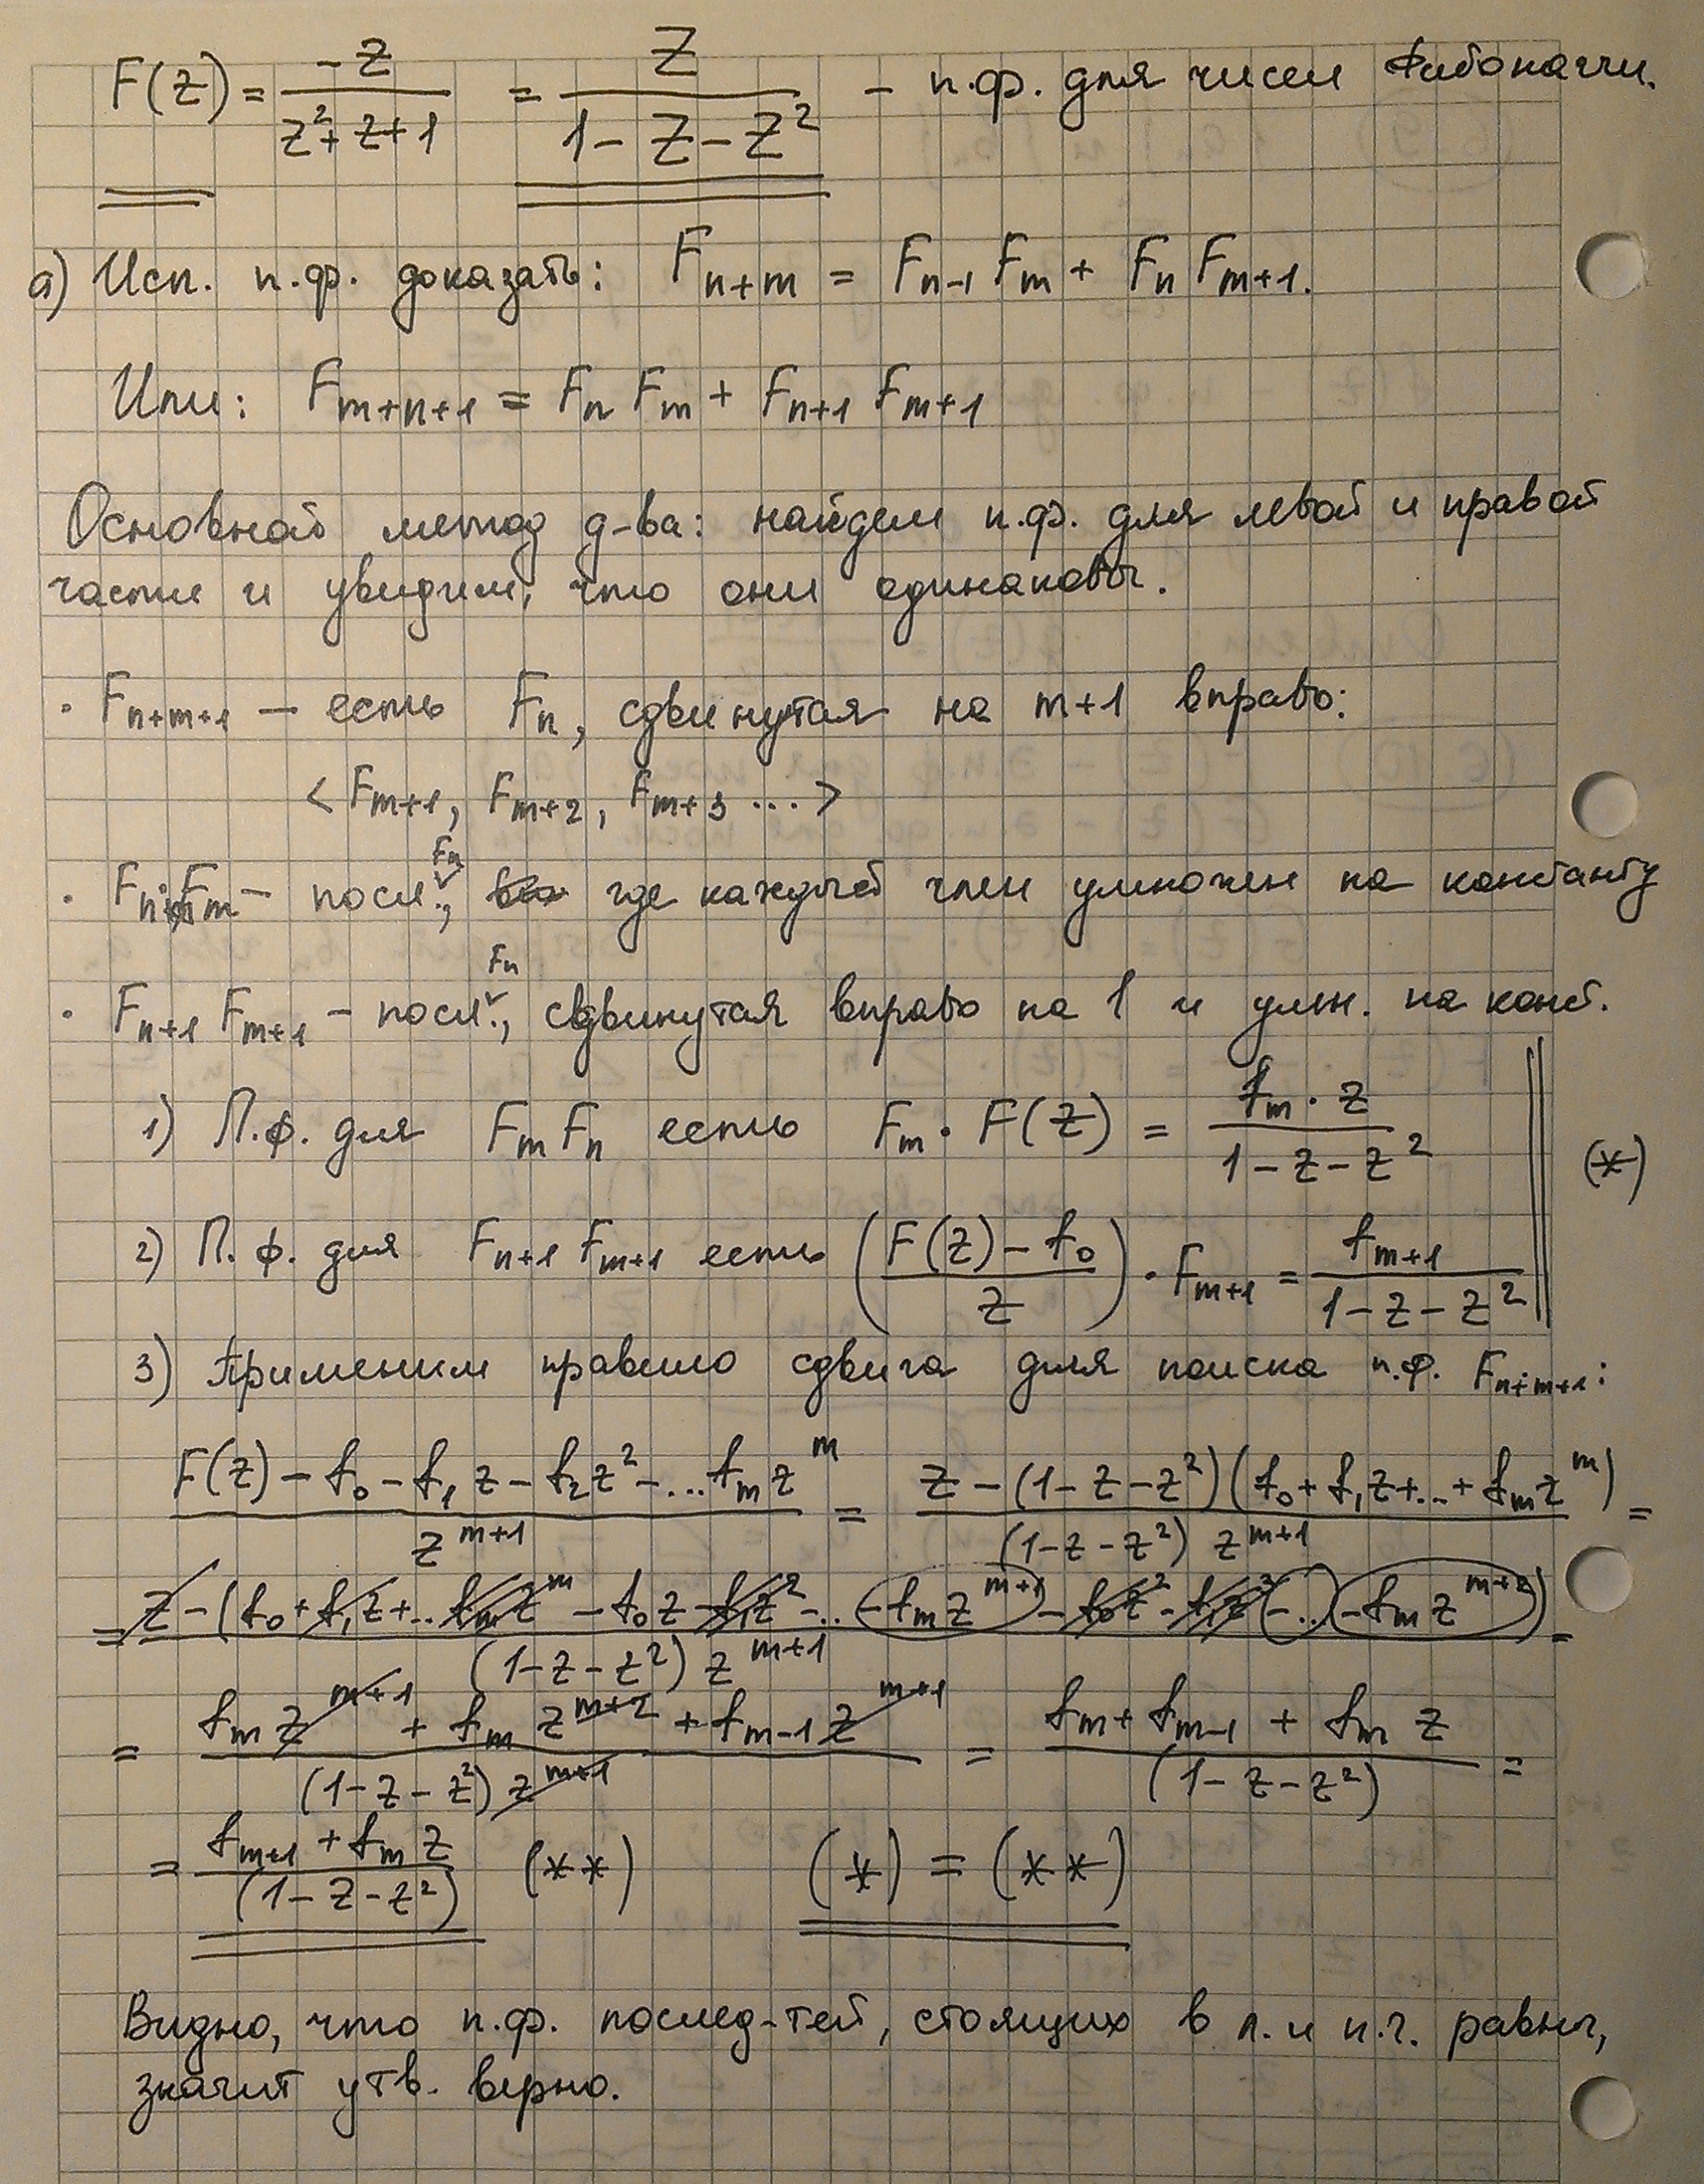 F(z) = -z / (z² + z + 1) = z / (1 - z - z²) - п.ф. для чисел Фибоначчи.
а) Исп. п.ф. доказать: F_{n+m} = F_{n-1} F_m + F_n F_{m+1}.
Или: F_{m+n+1} = F_n F_m + F_{n+1} F_{m+1}
Основной метод д-ва: найдем п.ф. для левой и правой
части и увидим, что они одинаковы.
· F_{n+m+1} — есть F_n, сдвинутая на m+1 вправо:
< F_{m+1}, F_{m+2}, F_{m+3} ... >
· F_n · F_m — посл. F_n, где каждый член умножен на константу
· F_{n+1} F_{m+1} - посл. F_n, сдвинутая вправо на 1 и умн. на конст.
1) П.ф. для F_m F_n есть F_m · F(z) = f_m · z / (1 - z - z²)
(*)
2) П.ф. для F_{n+1} F_{m+1} есть ((F(z) - f_0) / z) · F_{m+1} = f_{m+1} / (1 - z - z²)
3) Применим правило сдвига для поиска п.ф. F_{n+m+1}:
(F(z) - f_0 - f_1 z - f_2 z² - ... f_m z^m) / z^{m+1} = (z - (1 - z - z²)(f_0 + f_1 z + .. + f_m z^m)) / ((1 - z - z²) z^{m+1}) =
= (z - (f_0 + f_1 z + .. f_m z^m - f_0 z - f_1 z² - .. - f_m z^{m+1} - f_0 z² - f_1 z³ - .. - f_m z^{m+2})) / ((1 - z - z²) z^{m+1}) =
= (f_m z^{m+1} + f_m z^{m+2} + f_{m-1} z^{m+1}) / ((1 - z - z²) z^{m+1}) = (f_m + f_{m-1} + f_m z) / (1 - z - z²) =
= (f_{m+1} + f_m z) / (1 - z - z²) (**) (*) = (**)
Видно, что п.ф. послед-тей, стоящих в л. и п.ч. равны,
значит утв. верно.